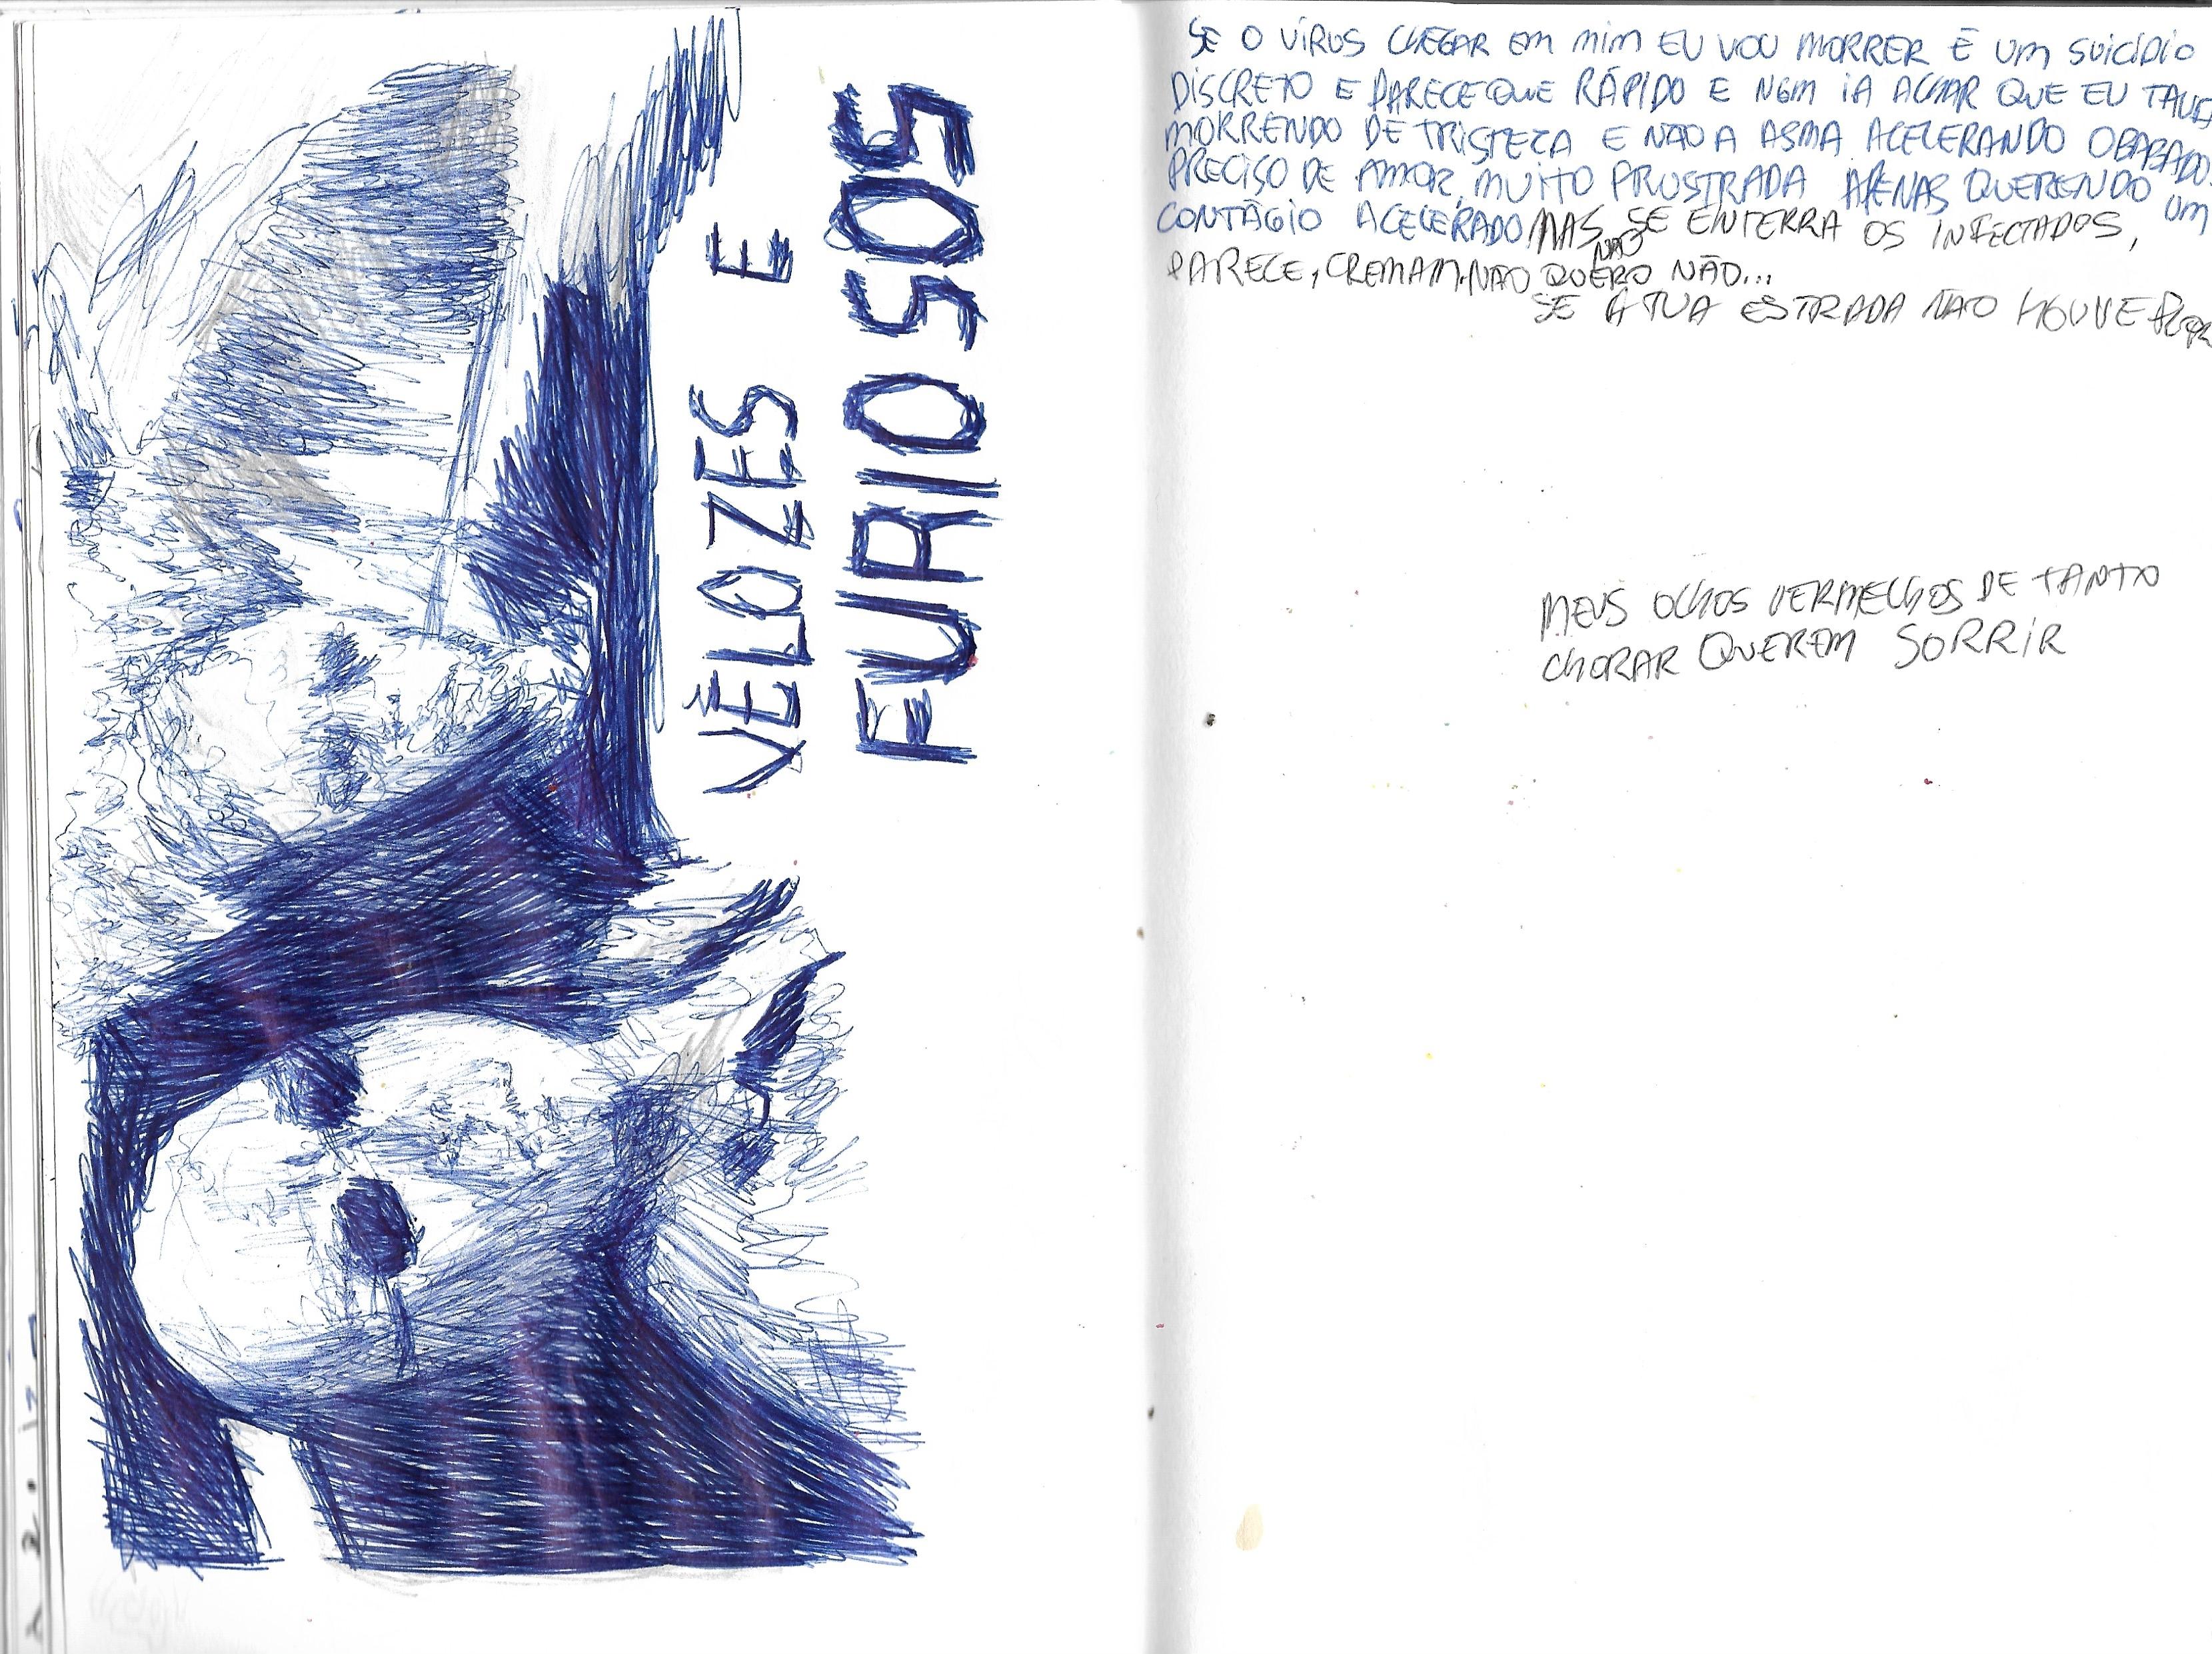 VELOZES E
FURIOSOS
SE O VÍRUS CHEGAR EM MIM EU VOU MORRER É UM SUICÍDIO
DISCRETO E PARECE QUE RÁPIDO E NGM IA ACHAR QUE EU TAVA
MORRENDO DE TRISTEZA E NÃO A ASMA ACELERANDO O BABADO.
PRECISO DE AMOR, MUITO PROSTRADA APENAS QUERENDO UM
CONTÁGIO ACELERADO. MAS NÃO SE ENTERRA OS INFECTADOS,
PARECE, CREMAM. NÃO QUERO NÃO...
SE À TUA ESTRADA NÃO HOUVE FLOR
MEUS OLHOS VERMELHOS DE TANTO
CHORAR QUEREM SORRIR